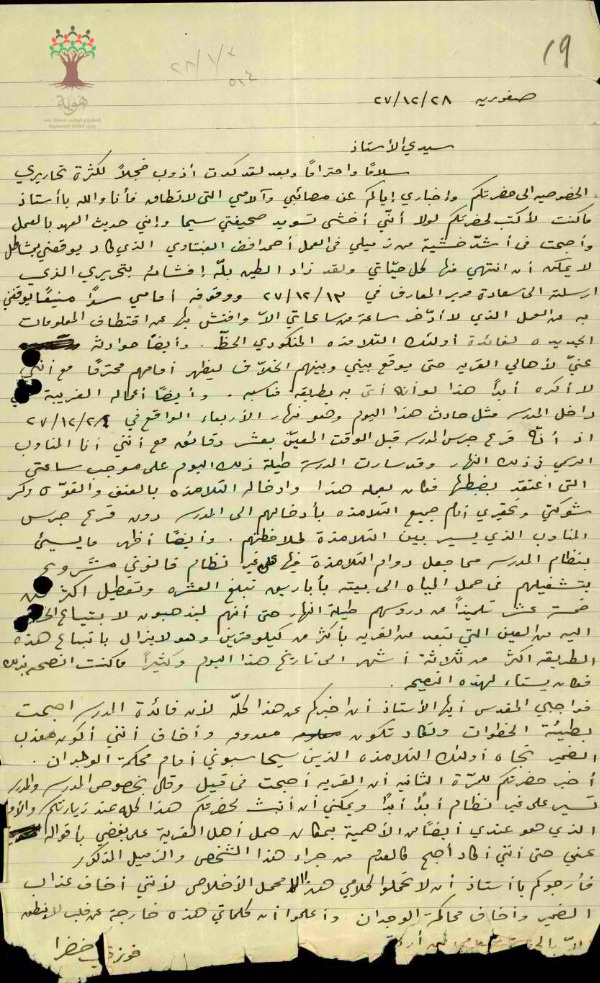 19
٢٨/١/٢
٥٢٤
هوية
صفوريه ٢٧/١٢/٢٨
سيدي الأستاذ
سلامًا واحترامًا وبعد لقد كدت أذوب خجلاً لكثرة تحاريري
الخصوصيه الى حضرتكم وإخباري إياكم عن مصائبي وآلامي التي لا تطاق فأنا والله يا أستاذ
ما كنت لأكتب لحضرتكم لولا أنني أخشى تسويد صحيفتي سيما وإني حديث العهد بالعمل
وأصبحت في أشدّ خشية من زميلي في العمل أحمد افندي الذي كاد يوقعني بمشاكل
لا يمكن أن انتهي منها كل حياتي ولقد زاد الطين بلّة إفشائه بتحريري الذي
ارسلته الى سعادة مدير المعارف في ٢٧/١٢/١٣ ووقوفه أمامي سدًا منيعًا يوقفني
به عن العمل الذي لا أدّخر ساعة من ساعاتي الاّ وافتش بها عن اقتطاف المعلومات
الجديده لفائدة أولئك التلامذه المنكودي الحظّ . وأيضًا حوادثه
عنّي لأهالي القريه حتى يوقع بيني وبينهم الخلاف ليظهر أمامهم محترمًا مع أنني
لا أكره أبدًا هذا لو أنه أتى به بطريقة مناسبه . وأيضًا أعماله الغريبة في
داخل المدرسه مثل حادث هذا اليوم وهو نهار الأربعاء الواقع في ٢٧/١٢/٢٨
اذ أنه قرع جرس المدرسه قبل الوقت المعيّن بعشر دقائق مع أنني أنا المناوب
الرسمي في ذلك النهار وقد سارت المدرسة طيلة ذلك اليوم على موجب ساعتي
التي أعتقد بضبطها فكان بعمله هذا وادخاله التلامذه بالعنف والقوّه وكسر
شوكتي وتحقيري أمام جميع التلامذه بأدخالهم الى المدرسه دون قرع جرس
المناوب الذي يسير بين التلامذة لملاحظتهم . وأيضًا أظهر ما يسيئ
بنظام المدرسه مما جعل دوام التلامذة فيها على غير نظام قانوني مشروع
بتشغيلهم في حمل المياه الى بيته بأباريق تبلغ العشره وتعطيل اكثر من
خمسة عشر تلميذًا عن دروسهم طيلة النهار حتى أنهم ليذهبون لابتياع
اليه من العين التي تبعد عن القريه بأكثر من كيلومترين وهو لا يزال باتباع هذه
الطريقه اكثر من ثلاثة أشهر الى تاريخ هذا اليوم وكثيرًا ما كنت انصحه بذلك
فكان يستاء لهذه النصيحه .
فواجبي المقدس أيها الأستاذ أن اخبركم عن هذا كلّه لأن فائدة المدرسه أصبحت
بطيئة الخطوات وتكاد تكون معدومه وأخاف أنني أكون معذب
الضمير تجاه أولئك التلامذه الذين سيحاسبوني أمام محكمة الوجدان .
أخبر حضرتكم للمرّة الثانيه أن القريه أصبحت في قيل وقال بخصوص المدرسه والمدرسه
تسير على غير نظام أبدًا أبدًا ويمكنني أن أثبت لحضرتكم هذا كله عند زيارتكم والأمر
الذي هو عندي أيضًا من الأهمية بمكان حمل أهل القرية على بغضي بأقواله
عني حتى أنني أكاد أصبح كالعدم من جراء هذا الشخص والزميل المذكور
فأرجوكم يا أستاذ أن لا تحملوا كلامي هذا الا محمل الأخلاص لأنني أخاف عذاب
الضمير وأخاف محاكمة الوجدان وأعلموا أن كلماتي هذه خارجة عن قلب لا ينطق
فوزي خضرا